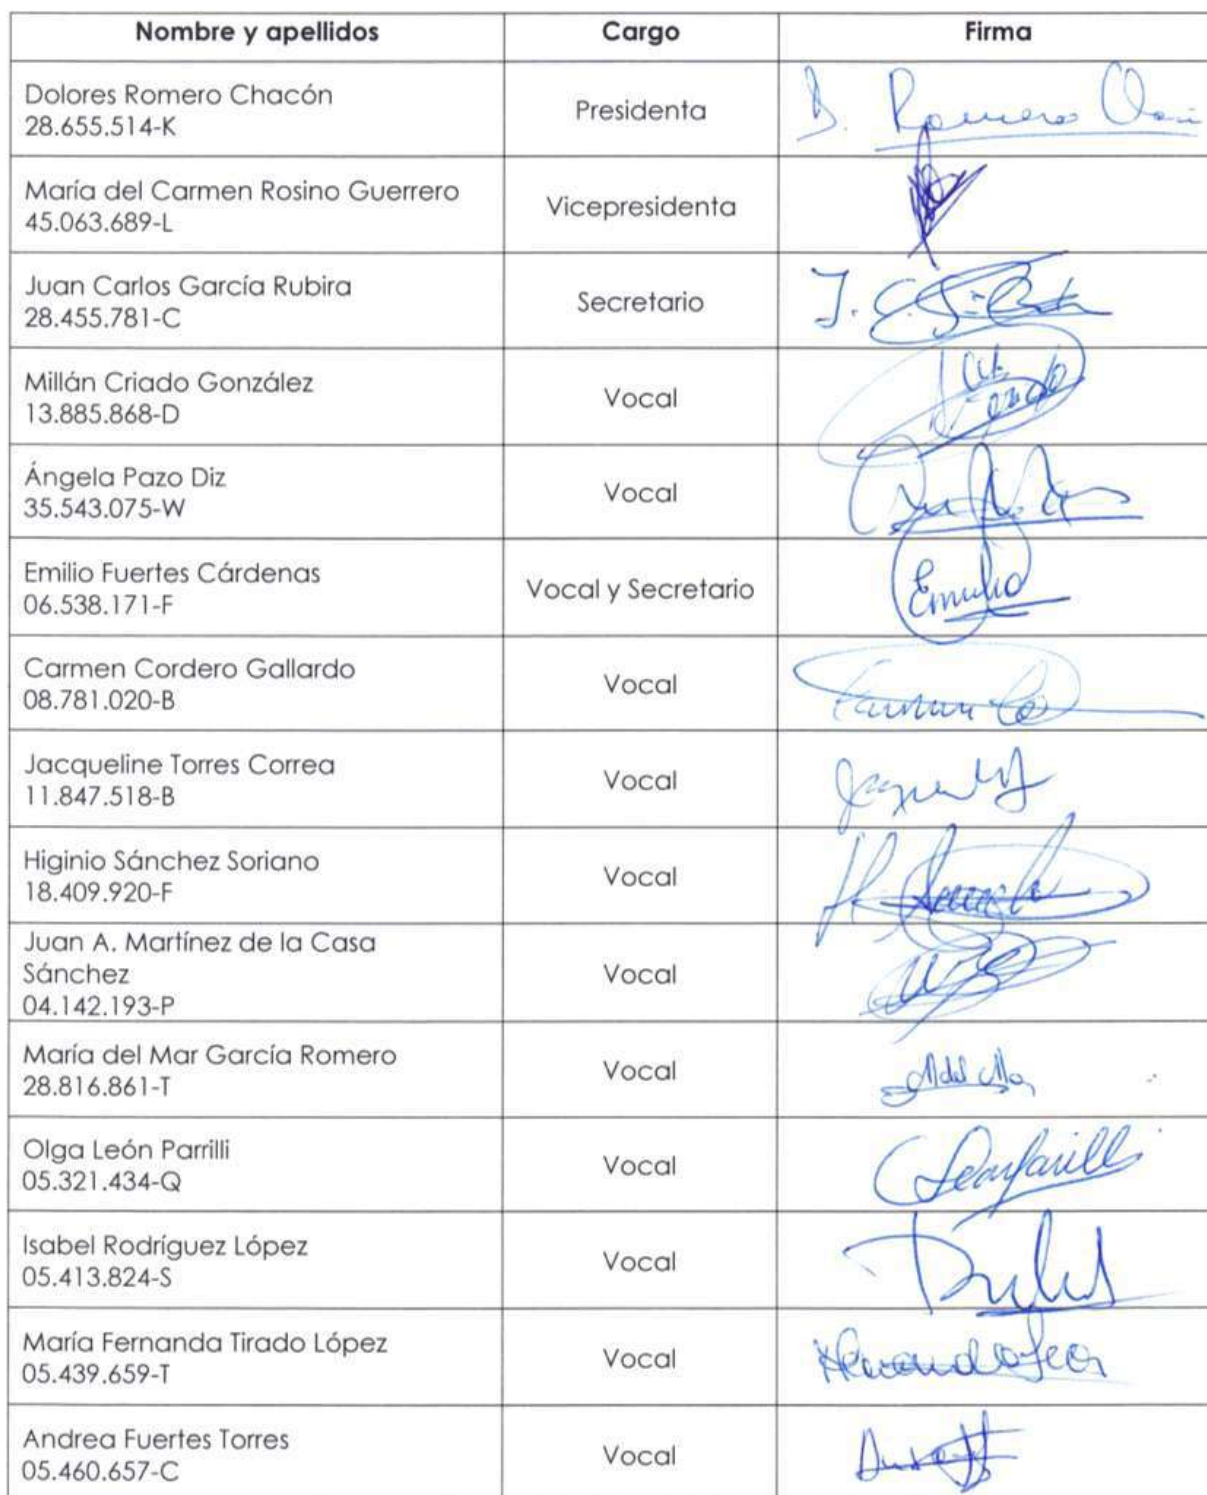 Nombre y apellidos Cargo Firma
Dolores Romero Chacón
28.655.514-K
Presidenta
D. Romero
María del Carmen Rosino Guerrero
45.063.689-L
Vicepresidenta
Juan Carlos García Rubira
28.455.781-C
Secretario
J. C.
Millán Criado González
13.885.868-D
Vocal
Ángela Pazo Diz
35.543.075-W
Vocal
Emilio Fuertes Cárdenas
06.538.171-F
Vocal y Secretario
Emilio
Carmen Cordero Gallardo
08.781.020-B
Vocal
Carmen Co
Jacqueline Torres Correa
11.847.518-B
Vocal
Higinio Sánchez Soriano
18.409.920-F
Vocal
Juan A. Martínez de la Casa
Sánchez
04.142.193-P
Vocal
María del Mar García Romero
28.816.861-T
Vocal
Olga León Parrilli
05.321.434-Q
Vocal
Isabel Rodríguez López
05.413.824-S
Vocal
María Fernanda Tirado López
05.439.659-T
Vocal
Andrea Fuertes Torres
05.460.657-C
Vocal